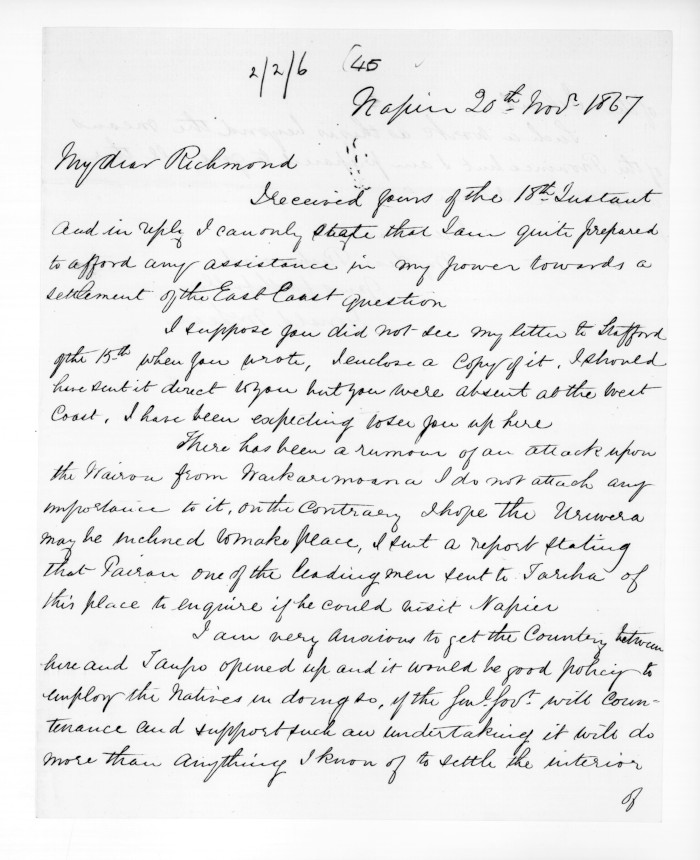 2/2/6 (45
Napier 20th Novr. 1867
My dear Richmond
I received yours of the 18th Instant
and in reply I can only state that I am quite prepared
to afford any assistance in my power towards a
settlement of the East Coast question
I suppose you did not see my letter to Stafford
of the 15th when you wrote, I enclose a copy of it. I should
have sent it direct to you but you were absent at the West
Coast, I have been expecting to see you up here
There has been a rumour of an attack upon
the Wairoa from Waikarimoana I do not attach any
importance to it, on the contrary I hope the Uriwera
may be inclined to make peace, I sent a report stating
that Pairau one of the leading men sent to Tareha of
this place to enquire if he could visit Napier
I am very anxious to get the Country between
here and Taupo opened up and it would be good policy to
employ the Natives in doing so, if the Genl. Govt. will coun-
tenance and support such an undertaking it will do
more than anything I know of to settle the interior
of